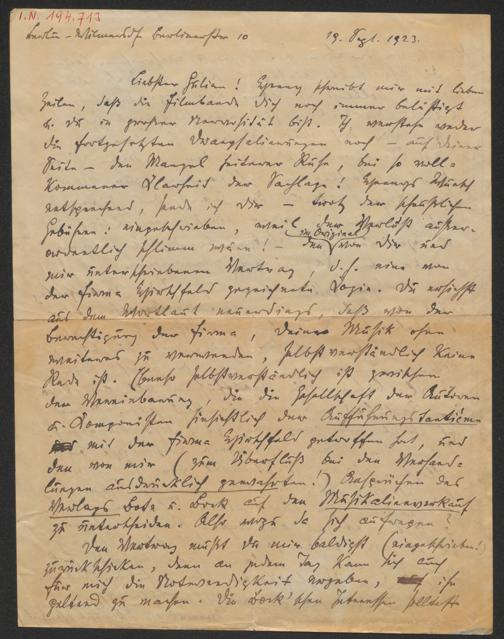 I.N. 194.713
Berlin-Wilmersdf Berlinerstr 10 19. Sept. 1923.
liebster Julian! schreibt mir mit lieben
Zeilen, daß die Filmbande Dich noch immer belästigt
u. du in großer Nervosität bist. Ich verstehe weder
die fortgesetzten noch – auf deiner
Seite – den Mangel heiterer Ruhe, bei so voll-
kommener Klarheid der Sachlage! Wunsch
entsprechend, sende ich dir – trotz der scheußlichen
Gebühren: eingeschrieben, weil der Verlust außer-
ordentlich schlimm wäre! – den im Original von Dir und
mir unterschriebenen Vertrag, d.h. eine von
der Firma Hirschfeld gezeichnete Copie. Du ersiehst
aus dem Wortlaut neuerdings, daß von der
Berechtigung der Firma, Deine Musik ohne
weiteres zu verwenden, selbstverständlich keine
Rede ist. Ebenso selbstverständlich ist zwischen
den Vereinbarung, die die Gesellschaft der Autoren
u. Komponisten hinsichtlich der Aufführungstantième
mit der Firma Hirschfeld getroffen hat, und
den von mir (zum Überfluß bei den Verhand-
lungen ausdrücklich gewahrten!) Ansprüchen des
Verlags Bote u. Bock auf den Musikalienverkauf
zu unterscheiden. Also wozu da sich aufregen?
Den Vertrag mußt du mir baldigst (eingeschrieben!)
zurückschicken, denn an jedem Tag kann sich auch
für mich die Notwendigkeit ergeben, ihn
geltend zu machen. Die Bock'schen Interessen solltest